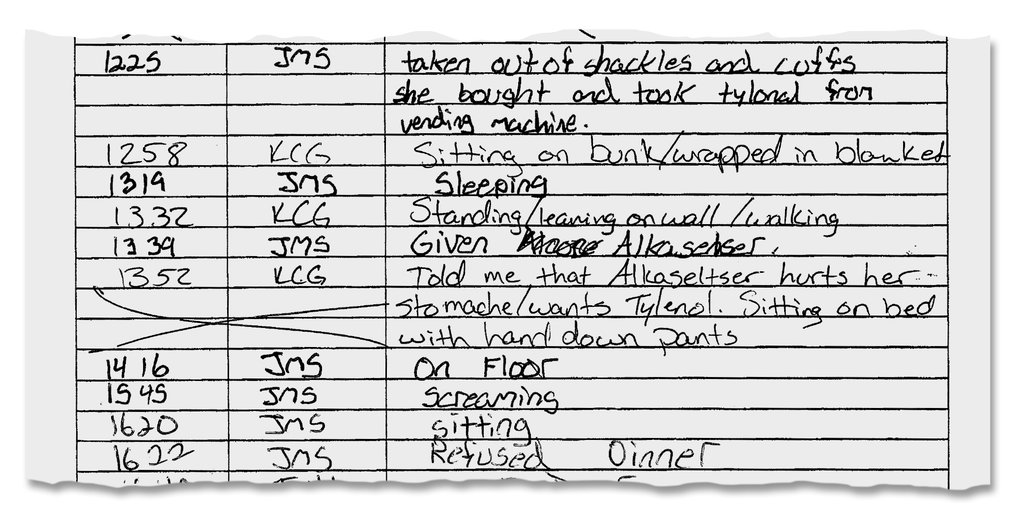 1225 JMS taken out of shackles and cuffs
she bought and took tylonal from
vending machine.
1258 KCG Sitting on bunk/wrapped in blanket
1319 JMS Sleeping
1332 KCG Standing/leaning on wall/walking
1339 JMS Given Alkaseltser.
1352 KCG Told me that Alkaseltser hurts her
stomache/wants Tylenol. Sitting on bed
with hand down pants
1416 JMS On Floor
1545 JMS Screaming
1620 JMS sitting
1622 JMS Refused Dinner